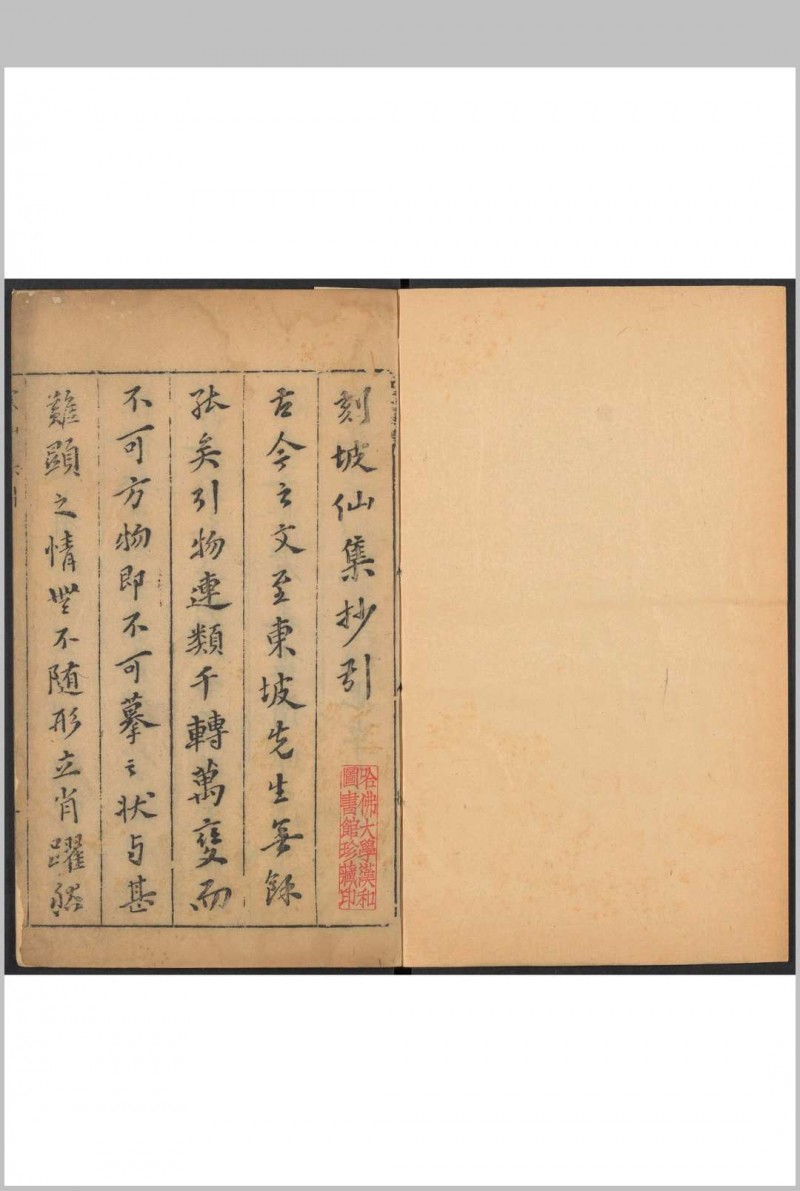 刻坡仙集抄引
古今之文至東坡先生無餘
矣引物連類千轉萬變而
不可方物即不可摹之狀与甚
難顯之情無不随形立肖躍然
哈佛大學漢和
圖書館珍藏印